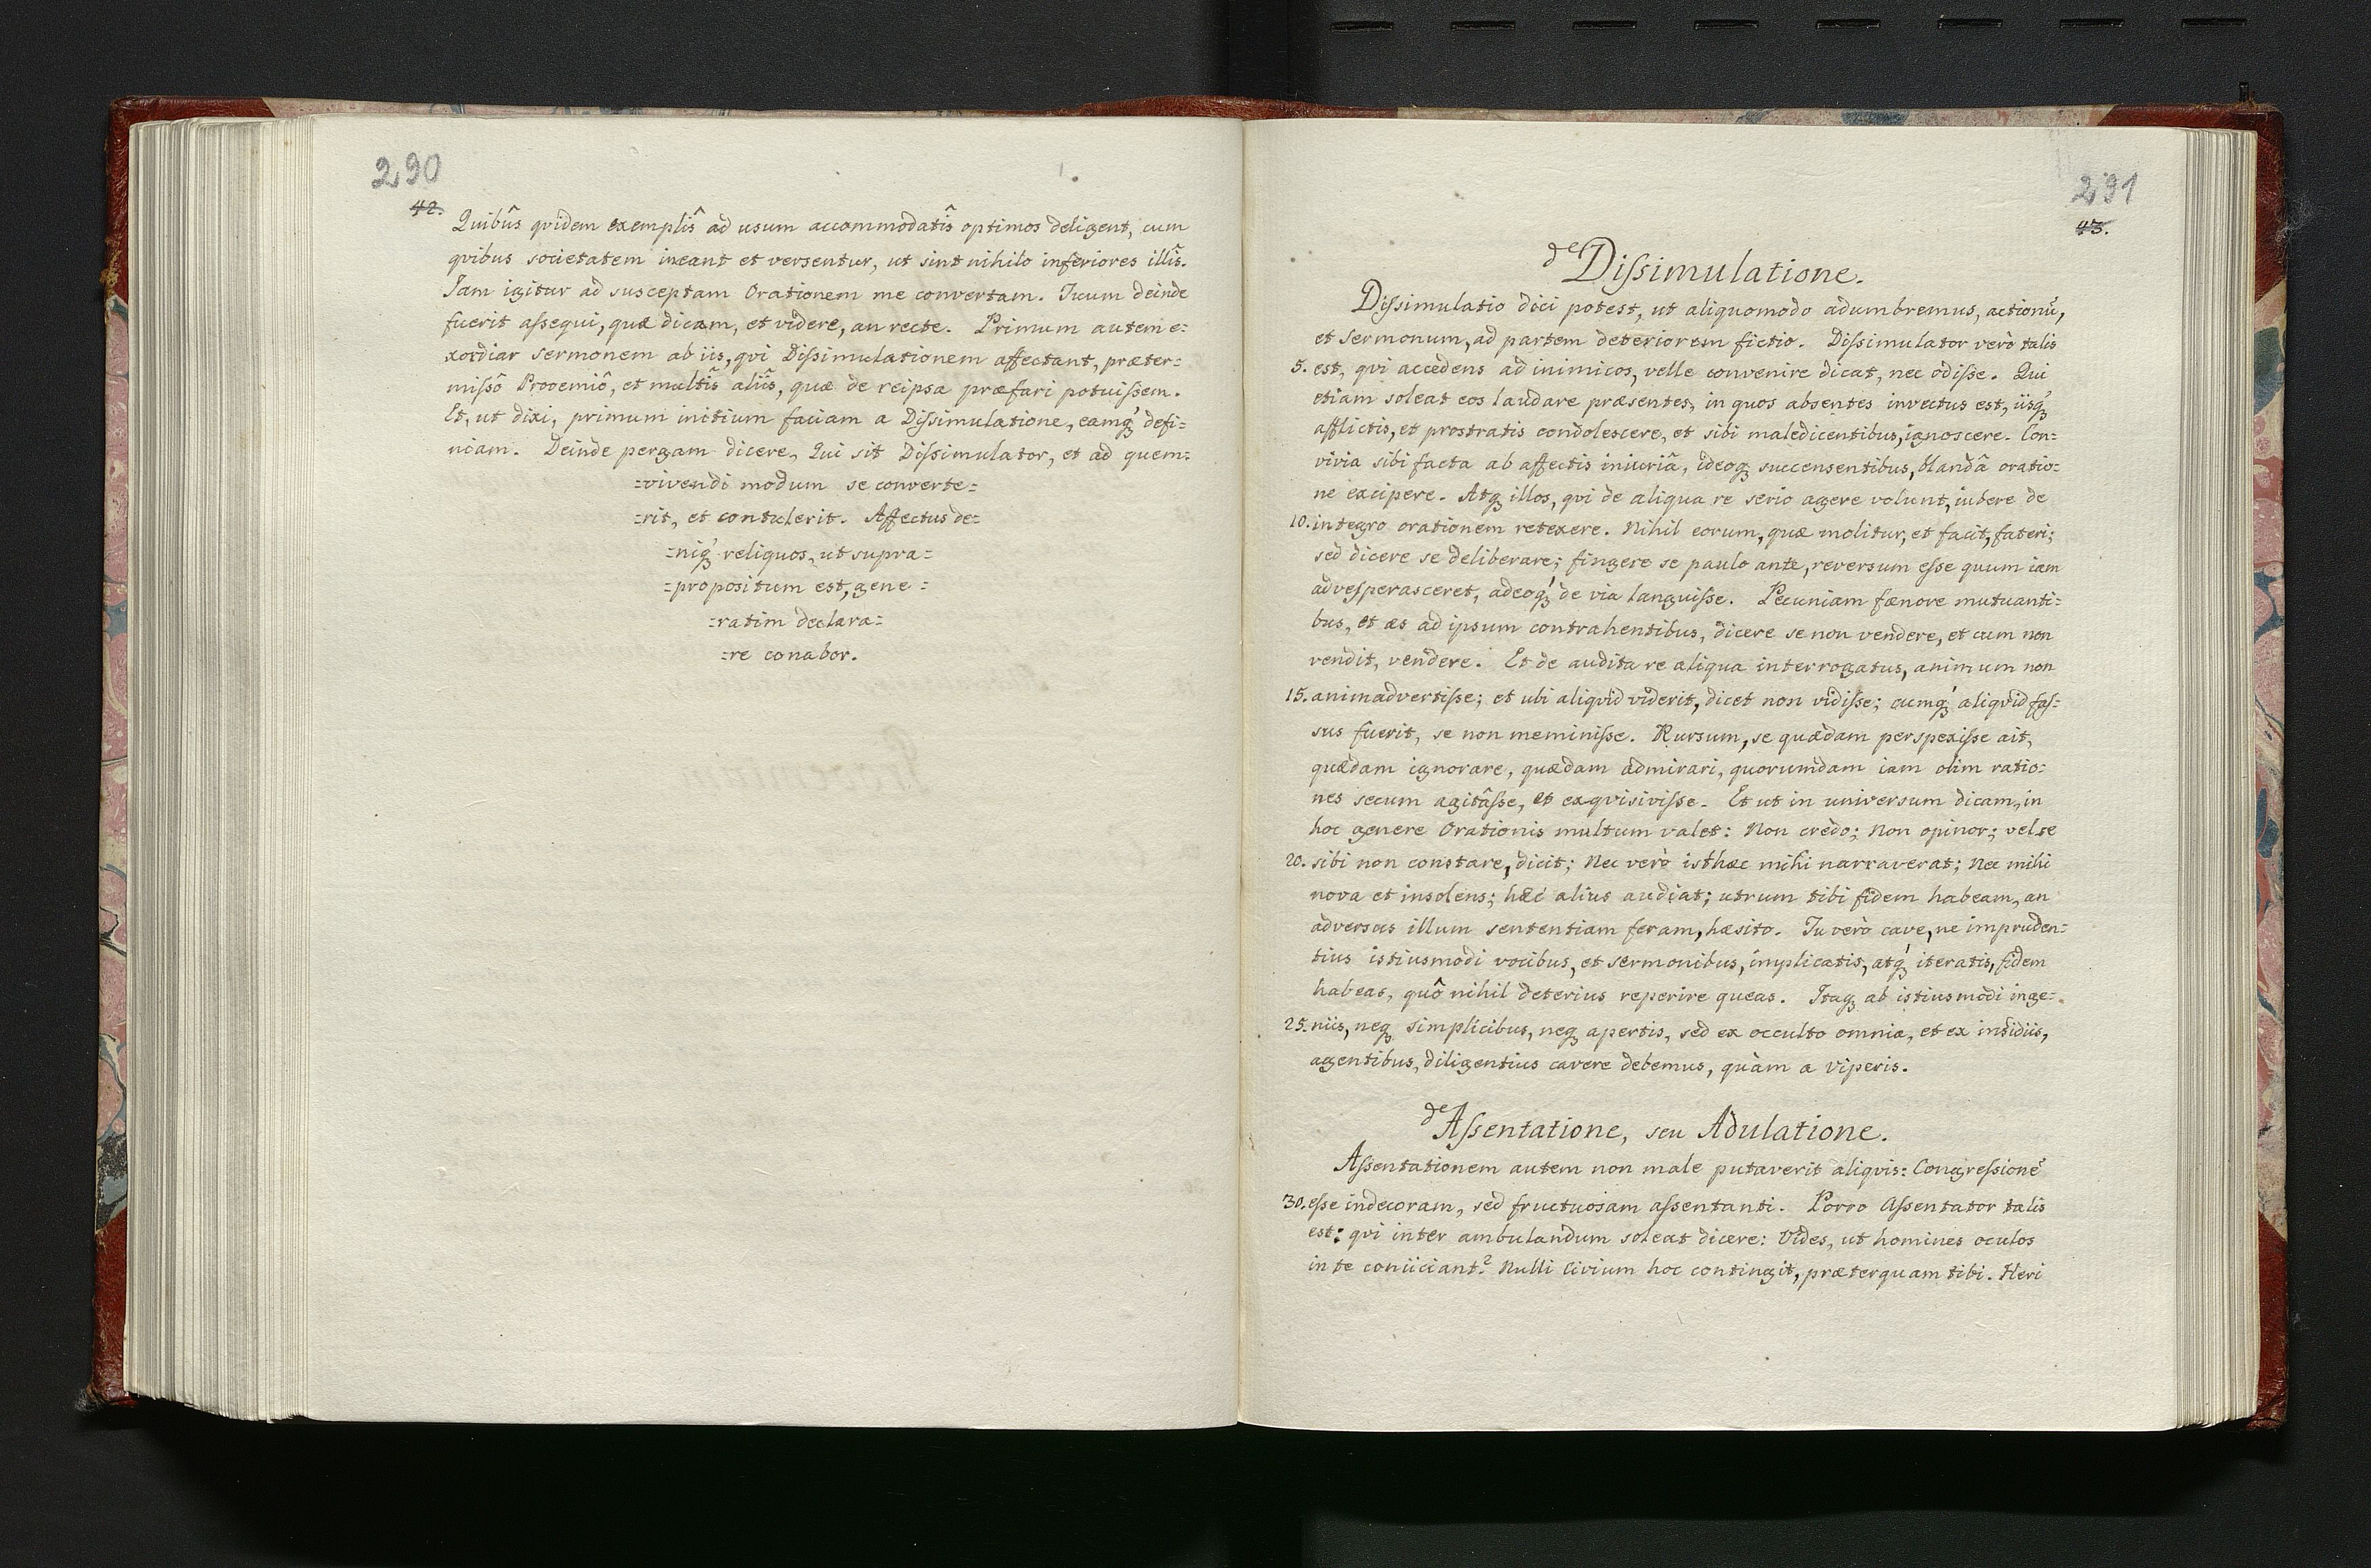 290
42.
Quibûs qvidem exemplîs ad usum accommodatîs optimos deligent, cum
qvibus societatem ineant et versentur, ut sint nihilo inferiores illîs.
Iam igitur ad susceptam Orationem me convertam. Tuum deinde
fuerit aſsequi, quæ dicam, et videre, an recte. Primum autem e:
xordiar sermonem ab iis, qvi Diſsimulationem affectant, præter:
miſsô Prooemiô, et multîs aliîs, quæ de reipsa præfari potuiſsem.
Et, ut dixi, primum initium faciam a Diſsimulatione, eamq́ȝ defi:
niam. Deinde pergam dicere, Qui sit Diſsimulator, et ad quem:
:vivendi modum se converte:
:rit, et contulerit. Affectus de:
:niq́ȝ reliquos, ut supra:
:propositum est, gene:
:ratim declara:
:re conabor.
291
43.
de Diſsimulatione.
Diſsimulatio dici potest, ut aliquomodo adumbremus, actionū,
et sermonum, ad partem deteriorem fictio. Diſsimulator verò talis
5. est, qvi accedens ad inimicos, velle convenire dicat, nec odiſse. Qui
etiam soleat eos laudare præsentes, in quos absentes invectus est, iisq́ȝ
afflictis, et prostratis condolescere, et sibi maledicentibus, ignoscere. Con:
vivia sibi facta ab affectis iniuriâ, ideoqȝ succensentibus, blandâ oratio:
ne excipere. Atqȝ illos, qvi de aliqua re serio agere volunt, iubere de
10. integro orationem retexere. Nihil eorum, quæ molitur, et facit, fateri;
sed dicere se deliberare; fingere se paulo ante, reversum eſse quum iam
adveſperasceret, adeoq́ȝ de via languiſse. Pecuniam fænore mutuanti:
bus, et æs ad ipsum contrahentibus, dicere se non vendere, et cum non
vendit, vendere. Et de audita re aliqua interrogatus, animum non
15. animadvertiſse; et ubi aliqvid viderit, dicet non vidiſse; cumq́ȝ aliqvid faſ:
sus fuerit, se non meminiſse. Rursum, se quædam perspexiſse ait,
quædam ignorare, quædam admirari, quorumdam iam olim ratio:
nes secum agitâſse, et exqvisiviſse. Et ut in universum dicam, in
hoc genere Orationis multum valet: Non credo; Non opinor; vel se
20. sibi non constare, dicit; Nec verò isthæc mihi narraverat; Nec mihi
nova et insolens; hæc alius audiat; utrum tibi fidem habeam, an
adversus illum sententiam feram, hæsito. Tu verò cave, ne impruden:
tius istiusmodi vocibus, et sermonibus, inplicatis, atq́ȝ iteratis, fidem
habeas, quô nihil deterius reperire queas. Itaqȝ ab istiusmodi inge:
25. niis, neqȝ simplicibus, neqȝ apertis, sed ex occulto omnia, et ex insidiis,
agentibus, diligentius cavere debemus, quàm a viperis.
de Aſsentatione, seu Adulatione.
Aſsentationem autem non male putaverit aliqvis: Congreſsionē
30. eſse indecoram, sed fructuosam aſsentanti. Porro Aſsentator talis
est: qvi inter ambulandum soleat dicere: Vides, ut homines oculos
in te coniiciant? Nulli Civium hoc contingit, præterquam tibi. Heri